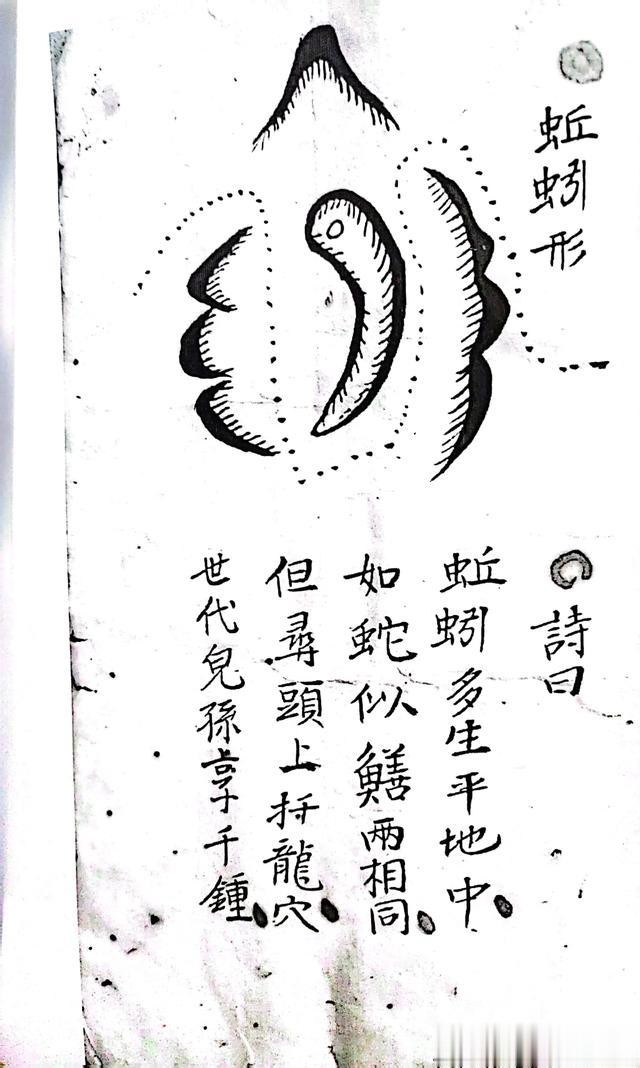 蚯蚓形
詩曰
蚯蚓多生平地中
如蛇似鱔兩相同
但尋頭上扦龍穴
世代兒孫享千鍾